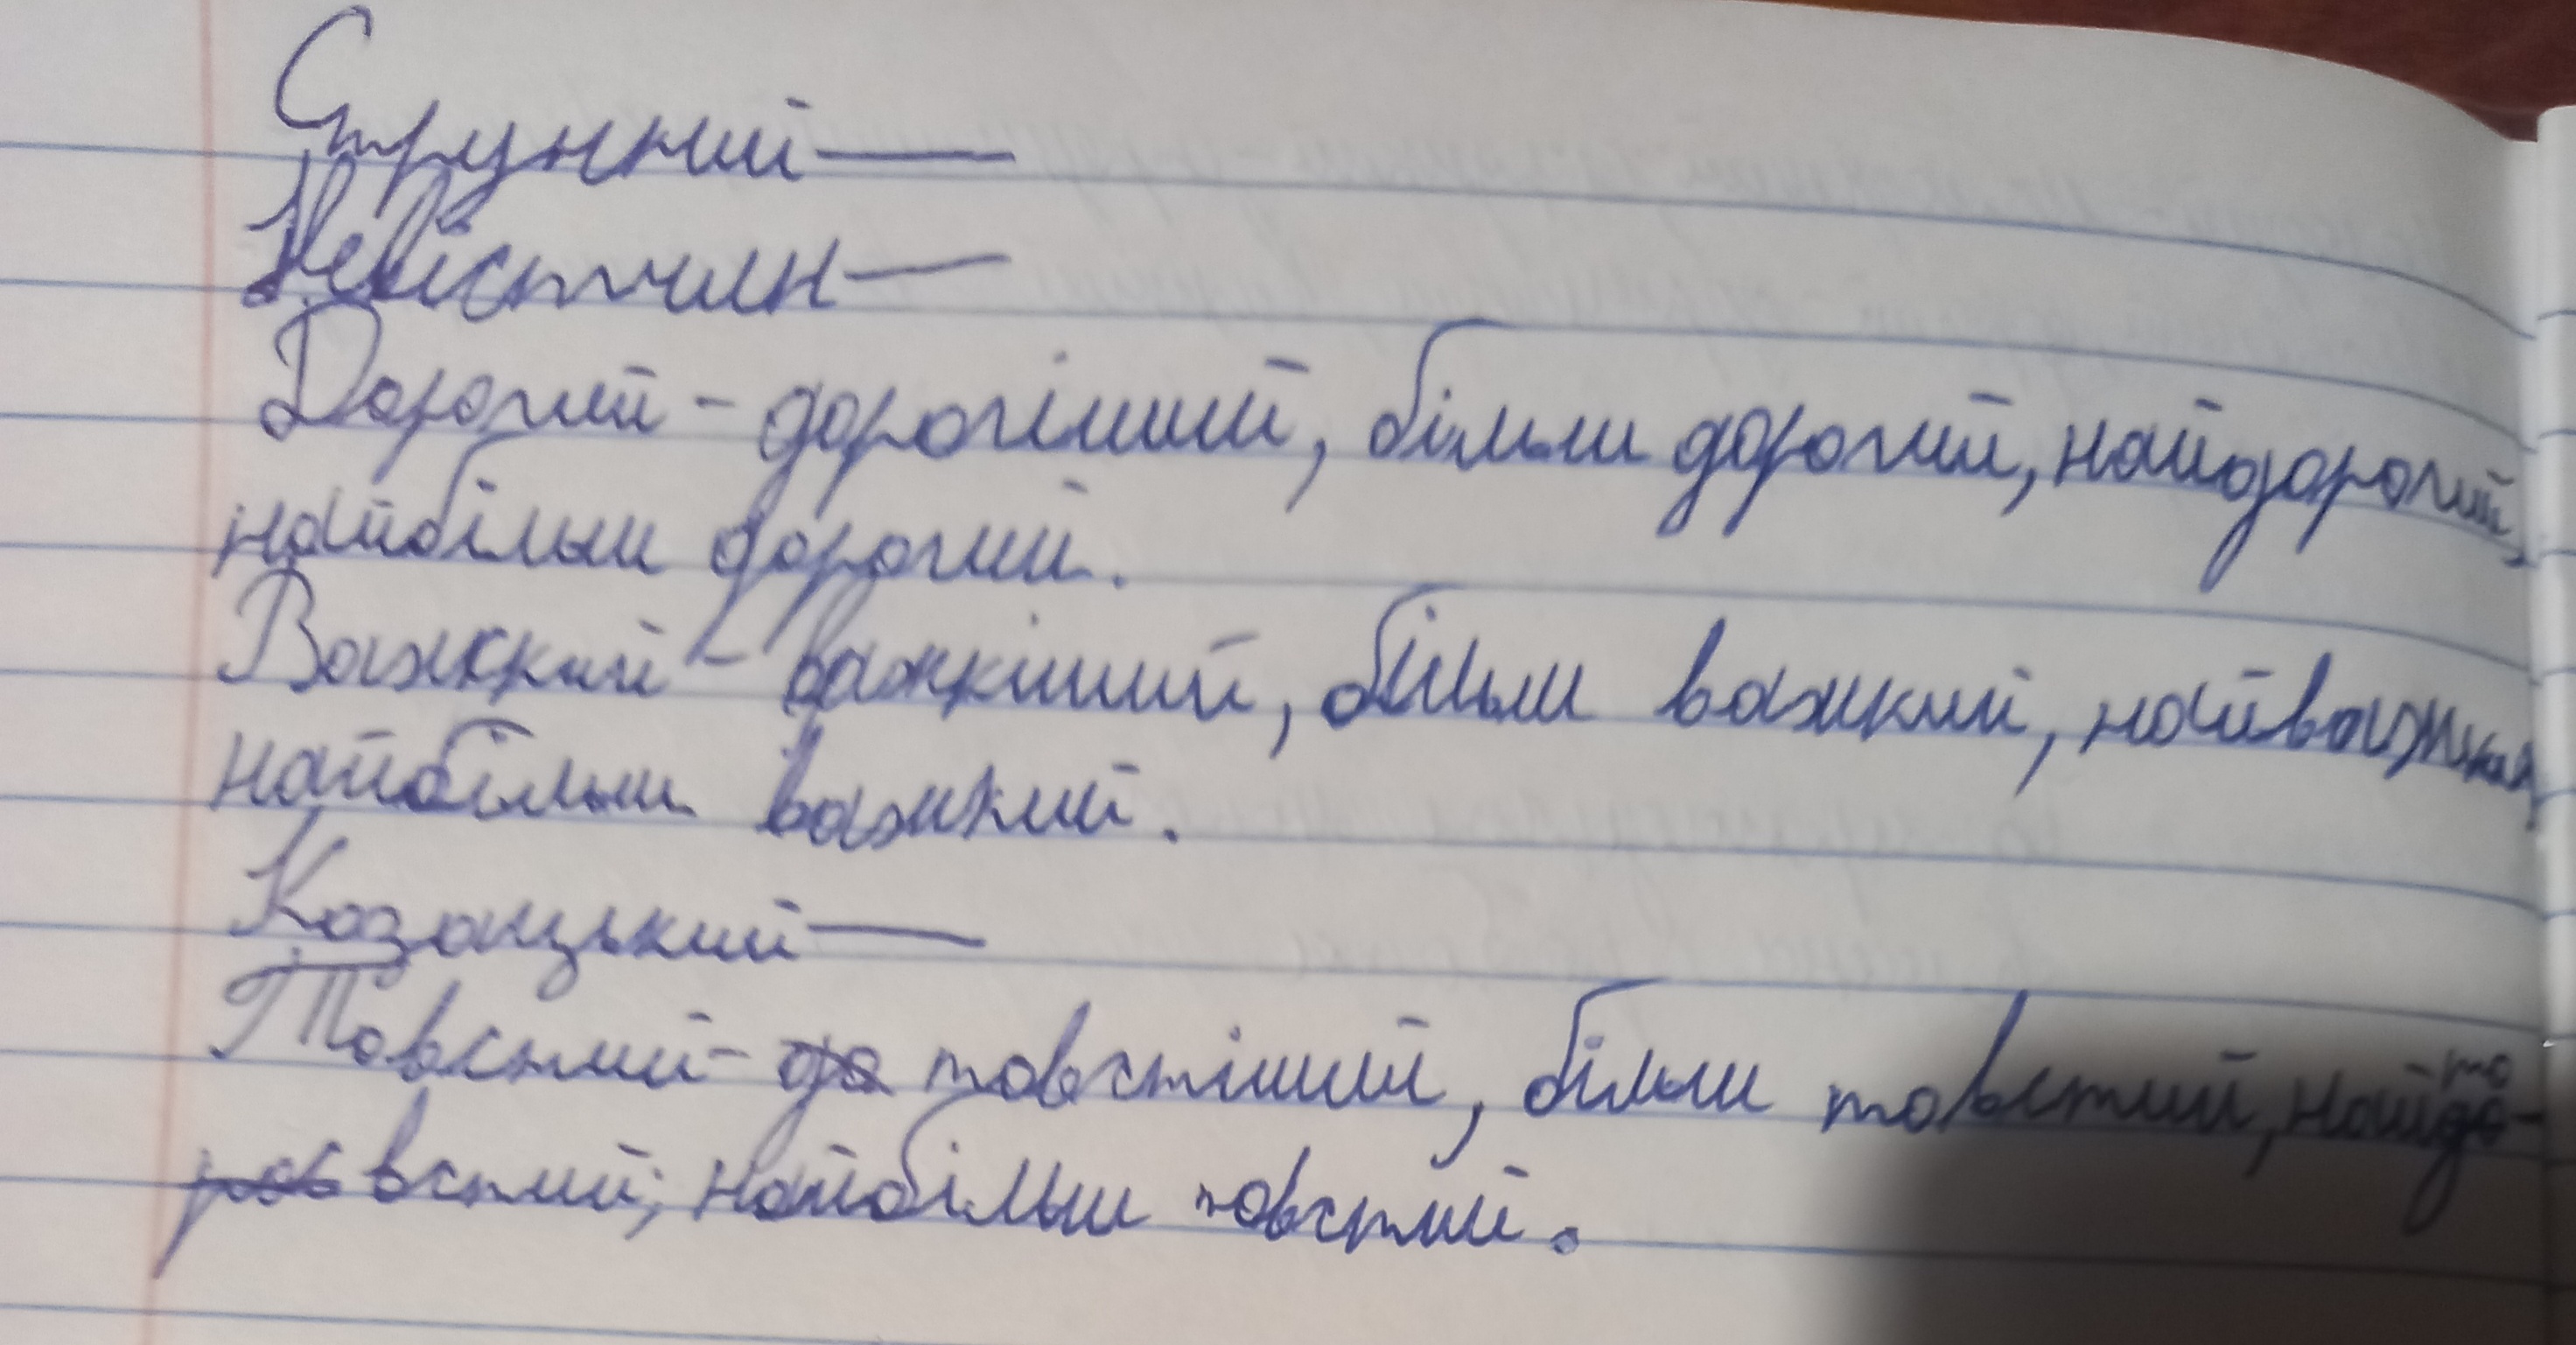 Струнний —
Невістчин —
Дорогий - дорогіший, більш дорогий, найдорогий,
найбільш дорогий.
Важкий - важкіший, більш важкий, найважкий,
найбільш важкий.
Козацький —
Товстий - товстіший, більш товстий, найто-
встий, найбільш товстий.